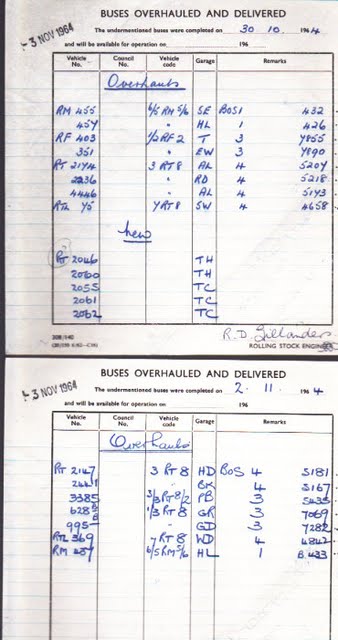 3 NOV 1964
BUSES OVERHAULED AND DELIVERED
The undermentioned buses were completed on 30 10. 1964
and will be available for operation on 196
Vehicle No. Council No. Vehicle code Garage Remarks
Overhauls
RM 455 6/5 RM 5/6 SE BOS 1 432
454 " HL 1 426
RF 403 1/2 RF 2 T 3 7855
351 " EW 3 7890
RT 2174 3 RT 8 AL 4 5204
2236 " RD 4 5218
4446 " AL 4 5143
RTL 45 7 RT 8 SW 4 4658
New
RT 2046 TH
2060 TH
2055 TC
2061 TC
2062 TC
R.D. Gillanders
ROLLING STOCK ENGINEER
3 NOV 1964
BUSES OVERHAULED AND DELIVERED
The undermentioned buses were completed on 2. 11. 1964
and will be available for operation on 196
Vehicle No. Council No. Vehicle code Garage Remarks
Overhauls
RT 2147 3 RT 8 HD BOS 4 5181
2441 " BK 4 5167
3385 3/3 RT 8/2 PB 3 5435
628 1/3 RT 8 GR 3 7069
995 " GD 3 7282
RTL 369 7 RT 8 WD 4 4842
RM 487 6/5 RM 5/6 HL 1 B.433